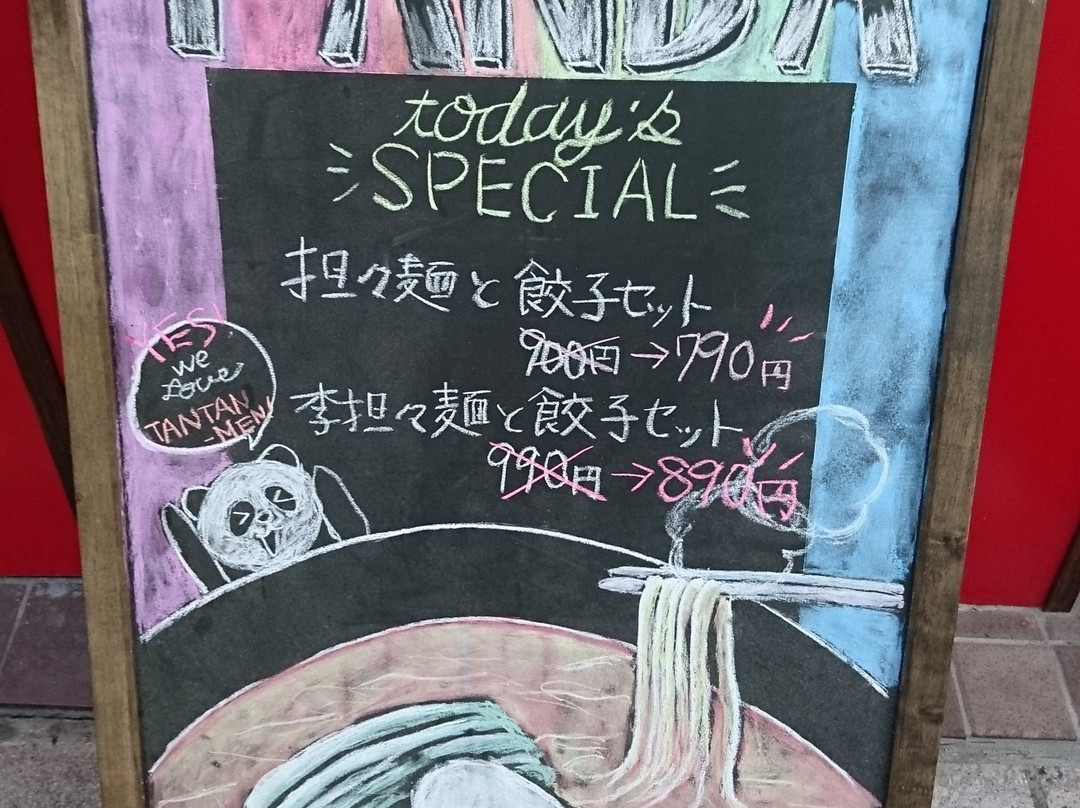 PANDA
today's
SPECIAL
担々麺と餃子セット
900円→790円
李担々麺と餃子セット
990円→890円
YES!
we
Love
TANTAN
-MEN!